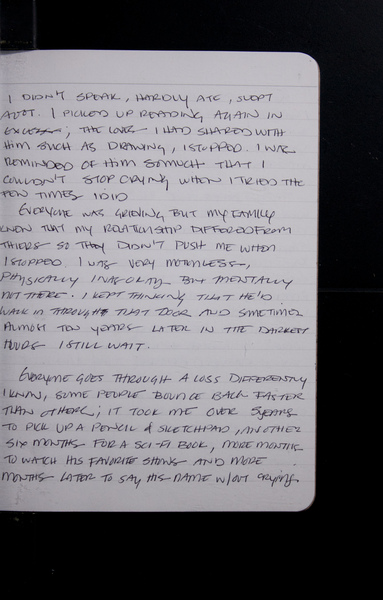 I DIDN'T SPEAK, HARDLY ATE, SLEPT
ALOT. I PICKED UP READING AGAIN IN
EXCESS; THE LOVES I HAD SHARED WITH
HIM SUCH AS DRAWING, I STOPPED. I WAS
REMINDED OF HIM SO MUCH THAT I
COULDN'T STOP CRYING WHEN I TRIED THE
FEW TIMES I DID
EVERYONE WAS GRIEVING BUT MY FAMILY
KNEW THAT MY RELATIONSHIP DIFFERED FROM
THIERS SO THEY DIDN'T PUSH ME WHEN
I STOPPED. I WAS VERY MOTIONLESS,
PHYSICALLY IN BUT MENTALLY
NOT THERE. I KEPT THINKING THAT HE'D
WALK IN THROUGH THAT DOOR AND SOMETIMES
ALMOST TEN YEARS LATER IN THE DARKEST
HOURS I STILL WAIT.
EVERYONE GOES THROUGH A LOSS DIFFERENTLY
I KNOW, SOME PEOPLE BOUNCE BACK FASTER
THAN OTHERS; IT TOOK ME OVER 5 YEARS
TO PICK UP A PENCIL & SKETCHPAD, ANOTHER
SIX MONTHS FOR A SCI-FI BOOK, MORE MONTHS
TO WATCH HIS FAVORITE SHOWS AND MORE
MONTHS LATER TO SAY HIS NAME W/OUT CRYING.